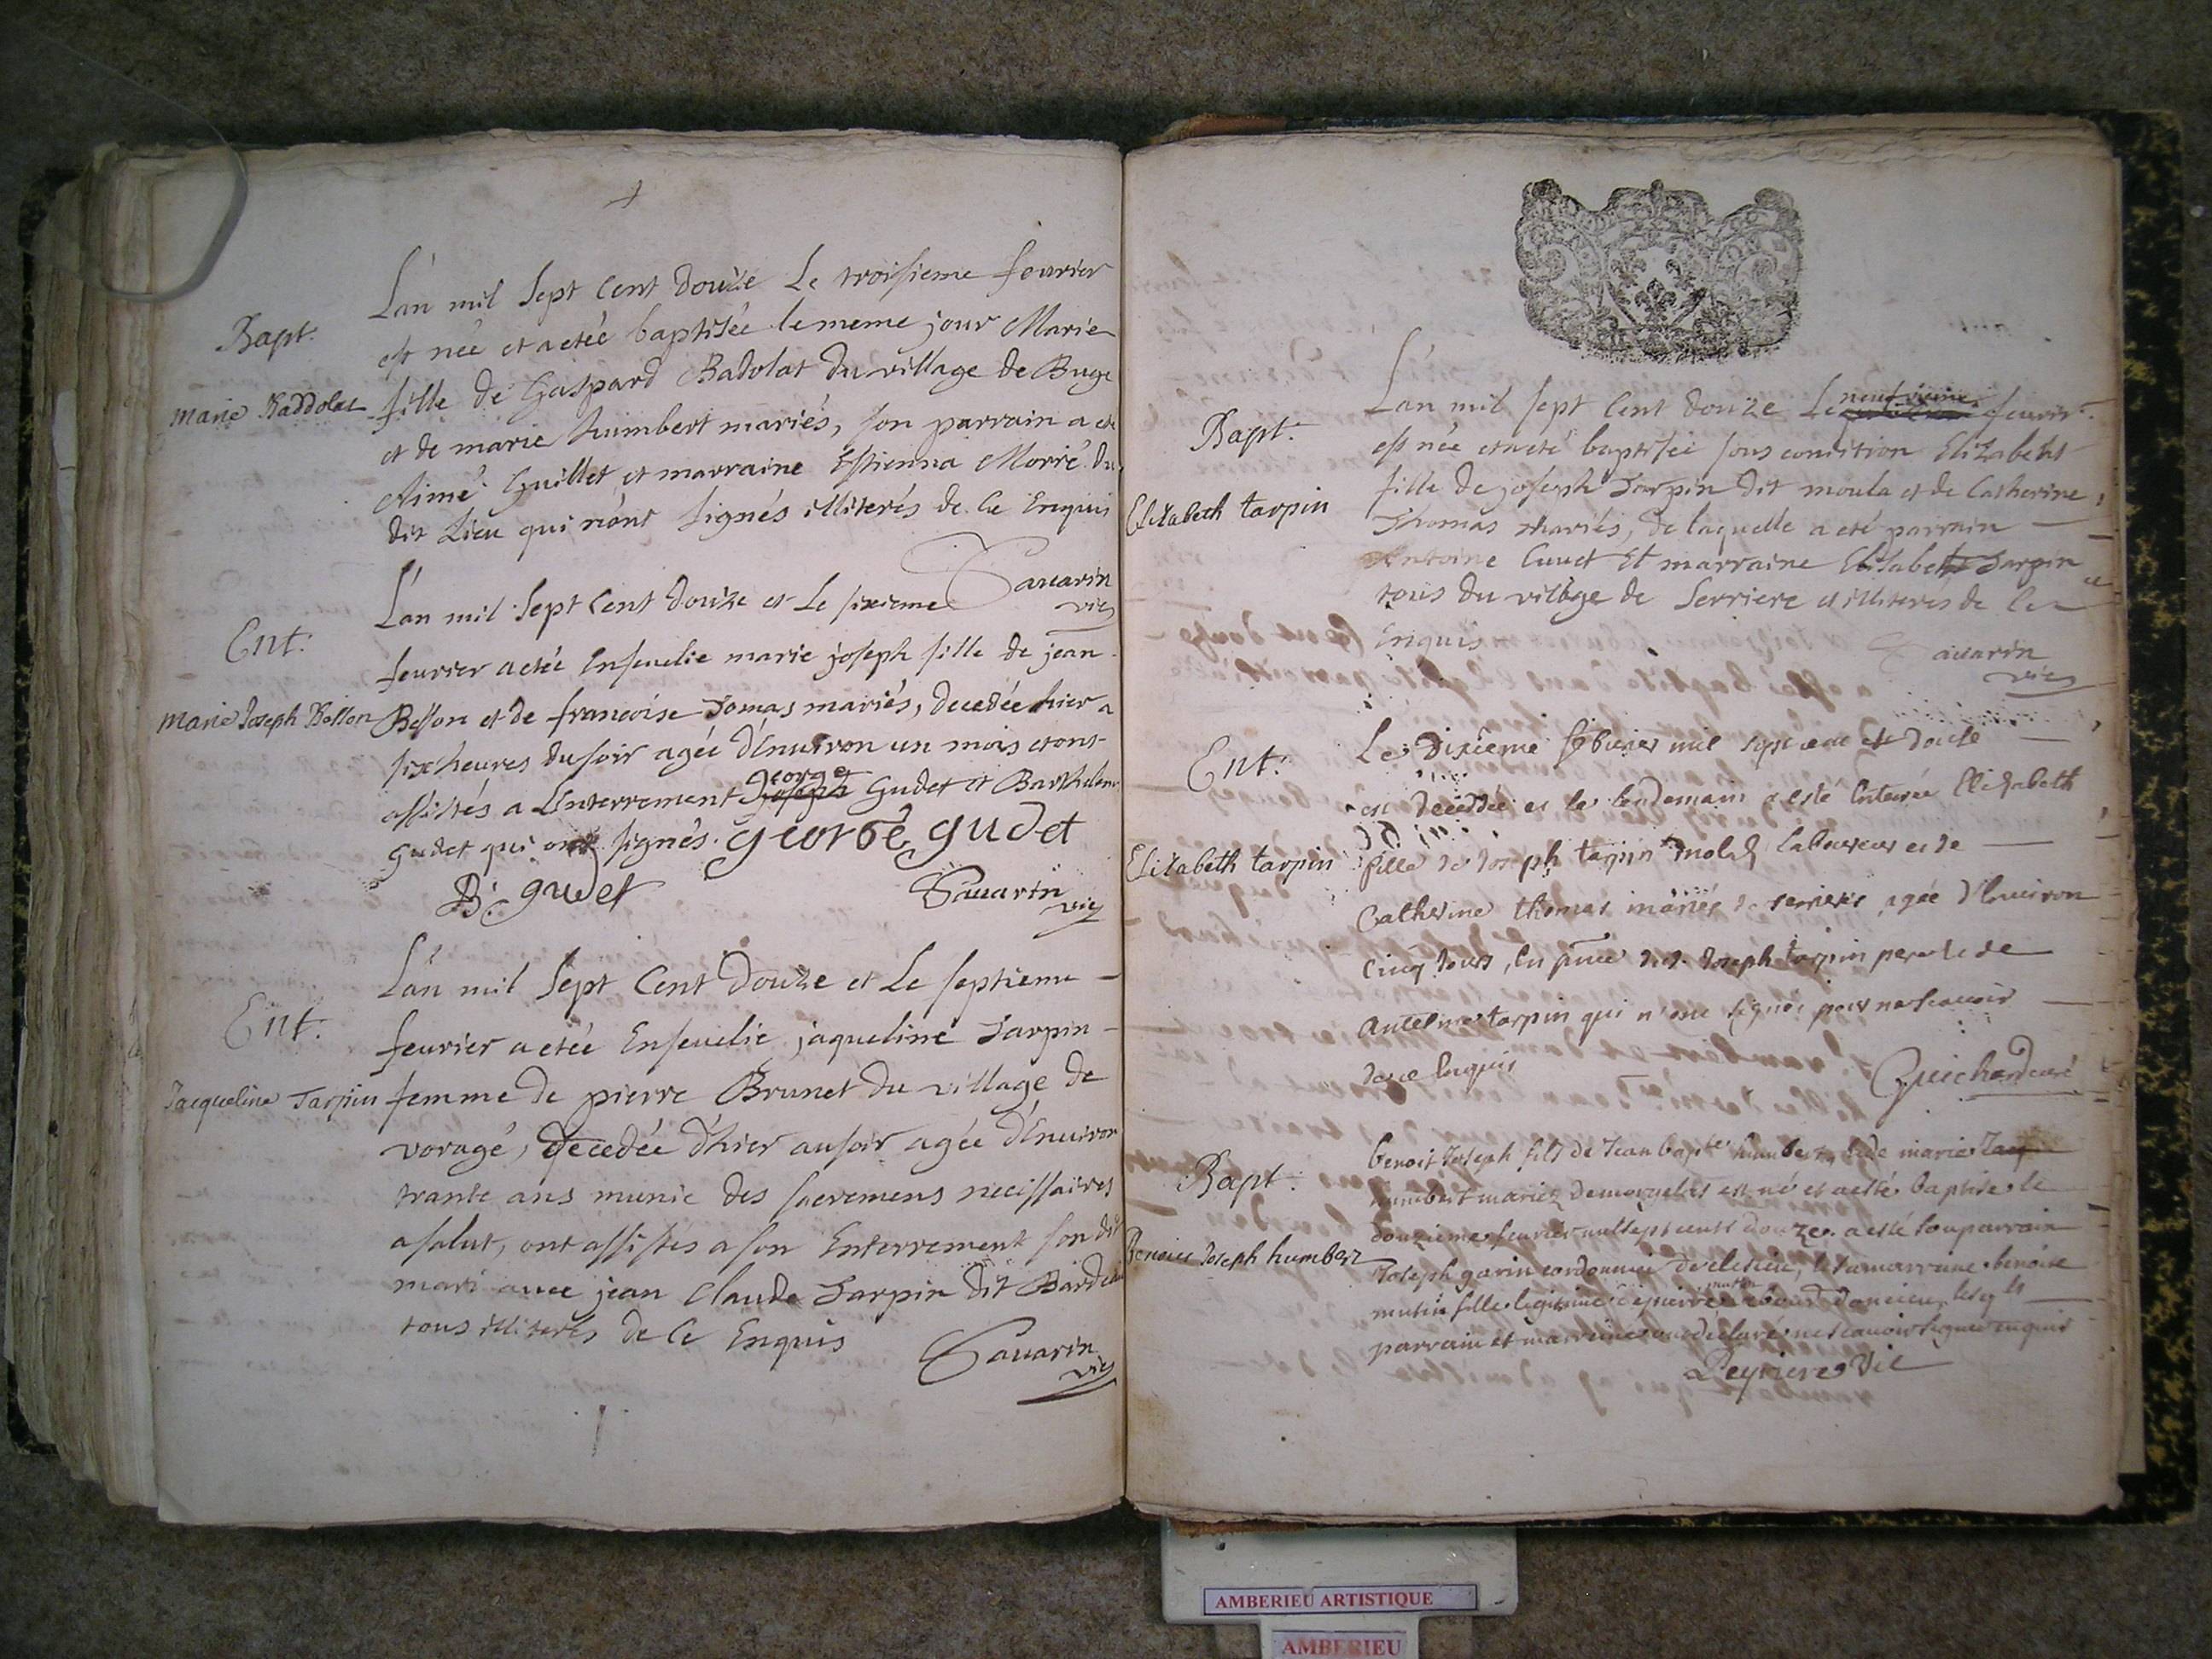 Bapt.
Marie Baddolat
L'an mil sept cent douze Le troisieme feurier
est née et a etée baptisée le meme jour Marie
fille de Gaspard Badolat du village de Buge
et de marie humbert mariés, son parrain a eté
Aimé Guillet et marraine Estienna Morré du
dit Lieu qui n'ont signés illiterés de ce Enquis
Sauarin
vic
Ent.
Marie Joseph Besson
L'an mil sept cent douze et Le sixieme
feurier a etée Enseuelie marie joseph fille de jean
Besson et de francoise Tomas mariés, decedée hier a
six heures du soir agée d'Enuiron un mois et ont
george
assistés a L'interrement joseph Gudet et Barthelem
Gudet qui ont signés. george gudet
B. gudet
Sauarin
vic
Ent.
Jacqueline Tarpin
L'an mil sept Cent Douze et Le septieme
feurier a etée Enseuelie jaqueline Tarpin
femme de pierre Brunet du village de
voragé, decedée d'hier au soir agée d'Enuiron
trante ans munie des sacremens necissaires
a salut, ont assistés a son Enterrement son dit
mari auec jean Claude Tarpin dit
tous illiterés de ce Enquis
Sauarin
vic
Bapt.
Elizabeth tarpin
neufvieme
L'an mil sept cent douze Le feurier
est née et a eté baptisée sous condition Elizabeht
fille de joseph Tarpin dit moula et de Catherine
Thomas mariés, de laquelle a eté parrain
Antoine Cuuet Et marraine Elisabeht Tarpin
tous du vilage de Serriere et illiterés de ce
Enquis
Sauarin
vic
Ent.
Elizabeth tarpin
Le dixieme februier mil sept cent et douse
est decedée et le lendemain a esté enterrée Elizabeth
fille de Joseph tarpin molaz laboureur et de
Catherine thomas mariés de serrieres agée d'enuiron
cinq jours, en pnce dud. Joseph tarpin pere et de
Antelme tarpin qui n'ont signés pour ne scauoir
de ce enquis
Guichard curé
Bapt.
Benoict Joseph humbert
benoit Joseph fils de Jean bapte humbert et de marie
humbert mariez demorgelas est né et a esté baptisé le
douzieme feurier mil sept cent douze. a esté son parrain
Joseph garin cordonnier de et sa marraine benoite
mutin
mutin fille legitime de pierre les qls
parrain et marraine ont declaré ne scauoir signer enquis
Peyriere vic
AMBERIEU ARTISTIQUE
AMBERIEU